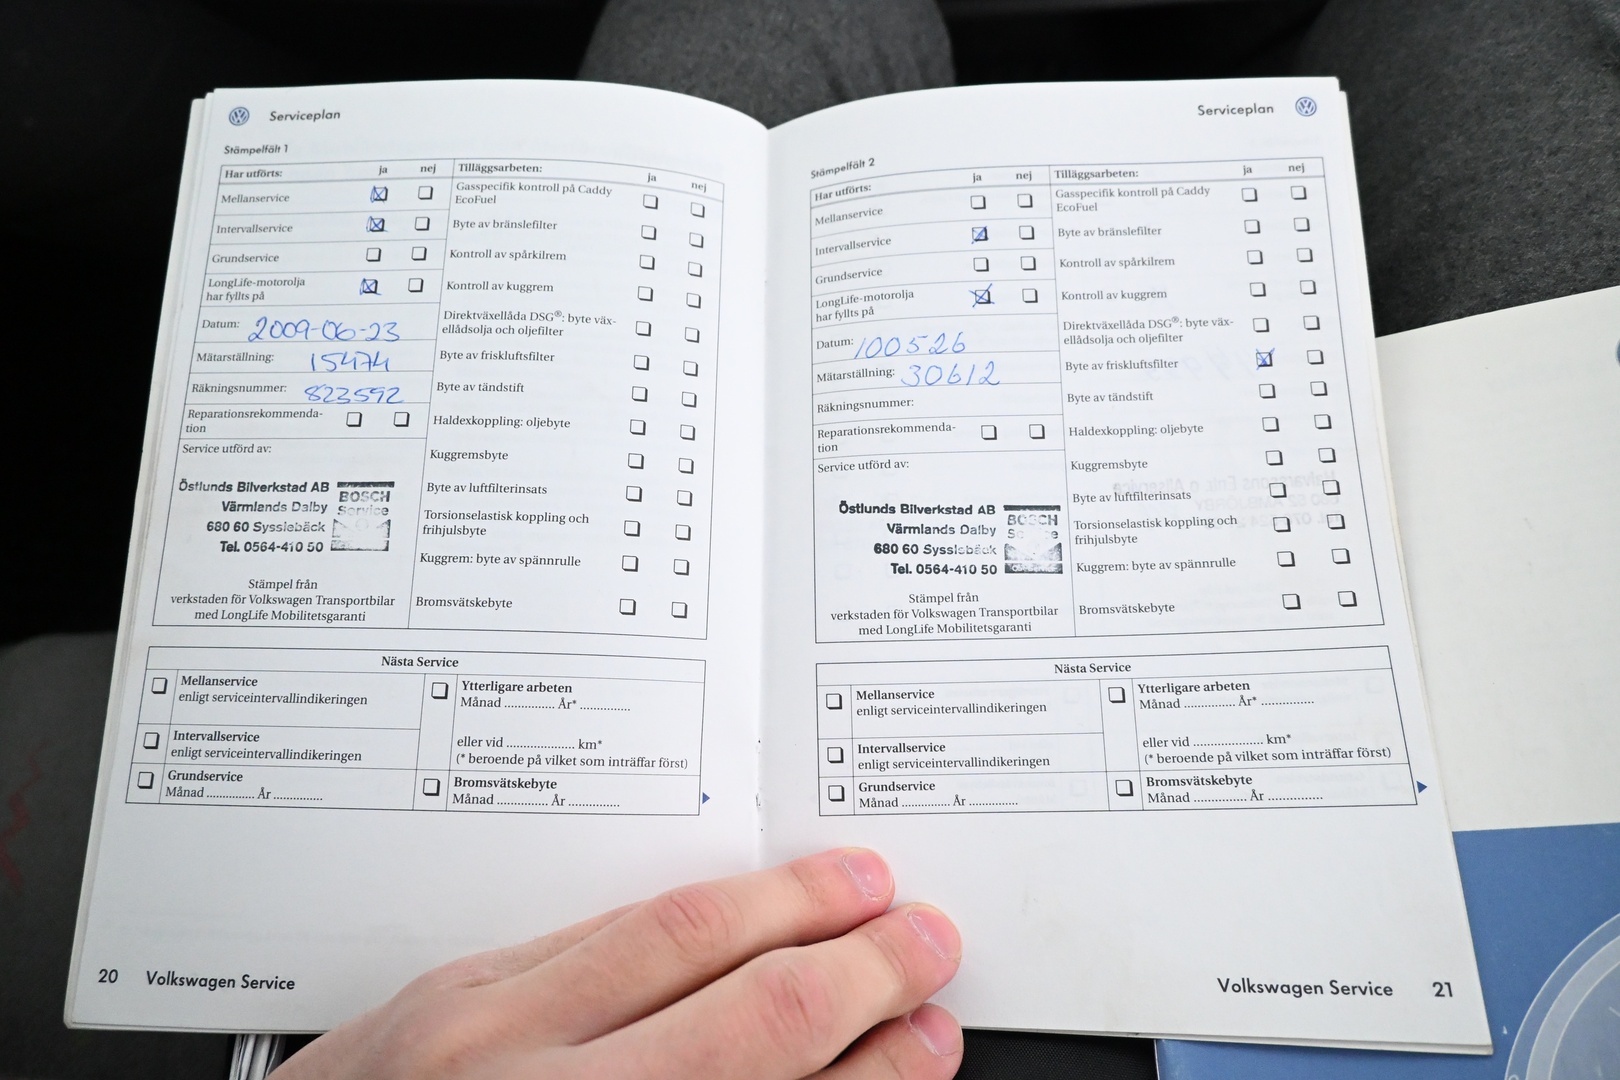 Serviceplan
Stämpelfält 1
Har utförts: ja nej
Mellanservice
Intervallservice
Grundservice
LongLife-motorolja
har fyllts på
Datum: 2009-06-23
Mätarställning: 15474
Räkningsnummer: 823592
Reparationsrekommenda-
tion
Service utförd av:
Östlunds Bilverkstad AB
Värmlands Dalby
680 60 Sysslebäck
Tel. 0564-410 50
BOSCH
Service
Stämpel från
verkstaden för Volkswagen Transportbilar
med LongLife Mobilitetsgaranti
Tilläggsarbeten: ja nej
Gasspecifik kontroll på Caddy
EcoFuel
Byte av bränslefilter
Kontroll av spårkilrem
Kontroll av kuggrem
Direktväxellåda DSG®: byte väx-
ellådsolja och oljefilter
Byte av friskluftsfilter
Byte av tändstift
Haldexkoppling: oljebyte
Kuggremsbyte
Byte av luftfilterinsats
Torsionselastisk koppling och
frihjulsbyte
Kuggrem: byte av spännrulle
Bromsvätskebyte
Nästa Service
Mellanservice
enligt serviceintervallindikeringen
Intervallservice
enligt serviceintervallindikeringen
Grundservice
Månad .............. År ..............
Ytterligare arbeten
Månad .............. År* ..............
eller vid .................... km*
(* beroende på vilket som inträffar först)
Bromsvätskebyte
Månad .............. År ..............
20 Volkswagen Service
Serviceplan
Stämpelfält 2
Har utförts: ja nej
Mellanservice
Intervallservice
Grundservice
LongLife-motorolja
har fyllts på
Datum: 100526
Mätarställning: 30612
Räkningsnummer:
Reparationsrekommenda-
tion
Service utförd av:
Östlunds Bilverkstad AB
Värmlands Dalby
680 60 Sysslebäck
Tel. 0564-410 50
BOSCH
Stämpel från
verkstaden för Volkswagen Transportbilar
med LongLife Mobilitetsgaranti
Tilläggsarbeten: ja nej
Gasspecifik kontroll på Caddy
EcoFuel
Byte av bränslefilter
Kontroll av spårkilrem
Kontroll av kuggrem
Direktväxellåda DSG®: byte väx-
ellådsolja och oljefilter
Byte av friskluftsfilter
Byte av tändstift
Haldexkoppling: oljebyte
Kuggremsbyte
Byte av luftfilterinsats
Torsionselastisk koppling och
frihjulsbyte
Kuggrem: byte av spännrulle
Bromsvätskebyte
Nästa Service
Mellanservice
enligt serviceintervallindikeringen
Intervallservice
enligt serviceintervallindikeringen
Grundservice
Månad .............. År ..............
Ytterligare arbeten
Månad .............. År* ..............
eller vid .................... km*
(* beroende på vilket som inträffar först)
Bromsvätskebyte
Månad .............. År ..............
Volkswagen Service 21